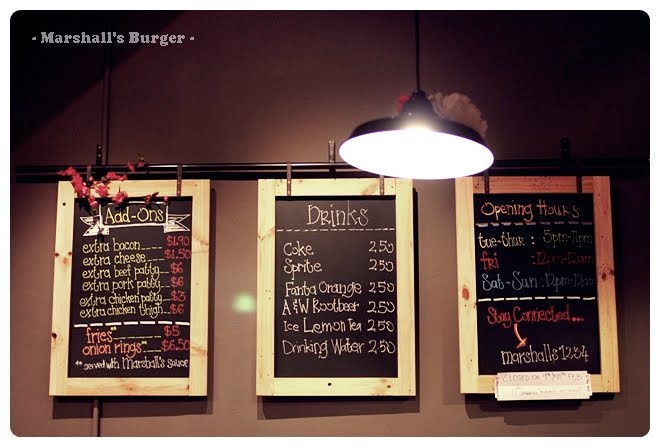 - Marshall's Burger -
Add-Ons
extra bacon____$1.90
extra cheese____$1.50
extra beef patty__$6
extra pork patty__$6
extra chicken patty__$3
extra chicken thigh__$6
fries**____$5
onion rings**__$6.50
** served with Marshall's sauce
Drinks
Coke 2.50
Sprite 2.50
Fanta Orange 2.50
A&W Rootbeer 2.50
Ice Lemon Tea 2.50
Drinking Water 2.50
Opening Hours
tue-thur : 5pm-11pm
fri : 12pm-12am
Sat-Sun : 12pm-12am
Stay Connected...
marshalls1234
CLOSED ON FEB